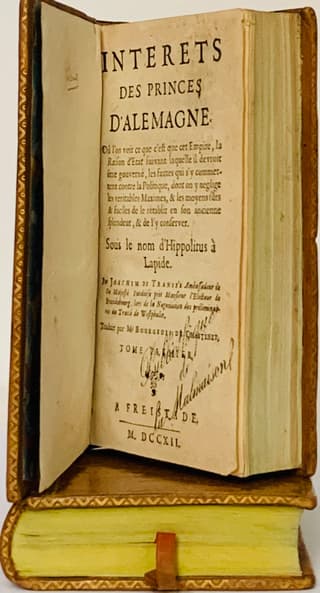 INTERETS
DES PRINCES
D'ALEMAGNE.
Où l'on voit ce que c'est que cet Empire, la
Raison d'Etat suivant laquelle il devroit
être gouverné, les fautes qui s'y commet-
tent contre la Politique, dont on y neglige
les veritables Maximes, & les moyens sûrs
& faciles de le rétablir en son ancienne
splendeur, & de l'y conserver.
Sous le nom d'Hippolitus à
Lapide.
Par JOACHIM DE TRANSÉE Ambassadeur de
Sa Majesté Suedoise pour Monsieur l'Electeur de
Brandebourg, lors de la Negociation des preliminai-
res du Traité de Westphalie,
Traduit par Mr BOURGEOIS DU CHASTENET,
TOME PREMIER,
Malmaison
A FREISTADE,
M. DCCXII.